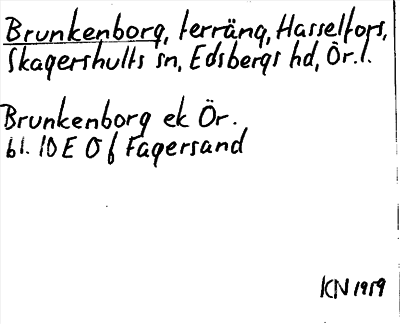 Brunkenborg, terräng, Hasselfors,
Skagershults sn, Edsbergs hd, Ör. l.
Brunkenborg ek Ör.
bl. 10 E 0 f Fagersand
KN 1959